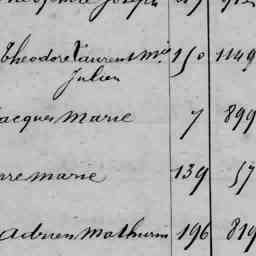 Joseph
Theodore Laurent M.ie 150 1149
Julien
Jacques Marie 7 899
rre Marie 139 57
Adrien Mathurin 196 819